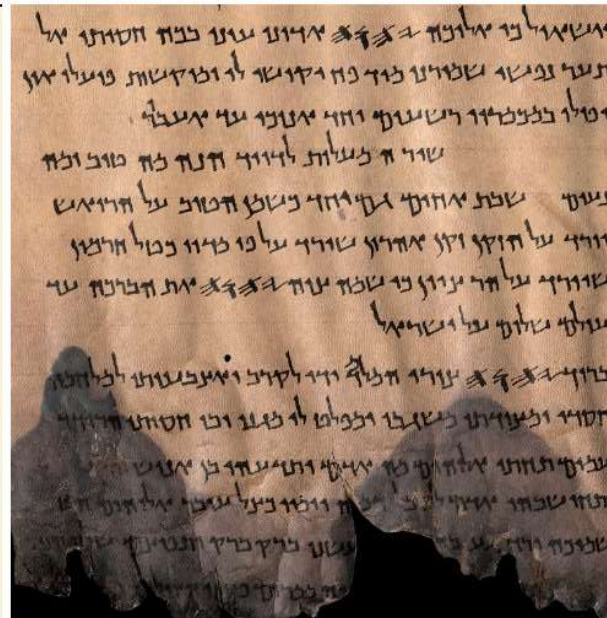 כי אליכה 𐤉𐤄𐤅𐤄 אדוני עיני בכה חסיתי אל
תער נפשי שמורני מיד פח יקושו לי ומוקשות פועלי און
יפולו במכמריו רשעים יחד אנוכי עד אעבר
שיר המעלות לדויד הנה מה טוב ומה
נעים שבת אחים גם יחד כשמן הטוב על הרואש
יורד על הזקן זקן אהרון שירד על פי מדיו כטל חרמון
שיורד על הר ציון כי שמה צוה 𐤉𐤄𐤅𐤄 את הברכה עד
עולם שלום על ישראל
ברוך 𐤉𐤄𐤅𐤄 צורי המלמד ידי לקרב ואצבעותי למלחמה
חסדי ומצודתי משגבי ומפלט לי מגני ובו חסיתי הרודד
עמים תחתי אלוהים מה אדם ותדעהו בן אנוש
אלוהים
ברק ברק